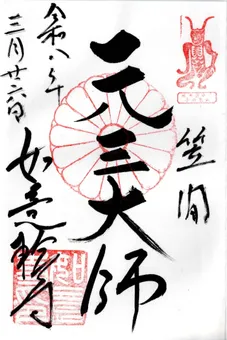 笠間
元三大師
如意輪寺
令和八年
三月廿六日